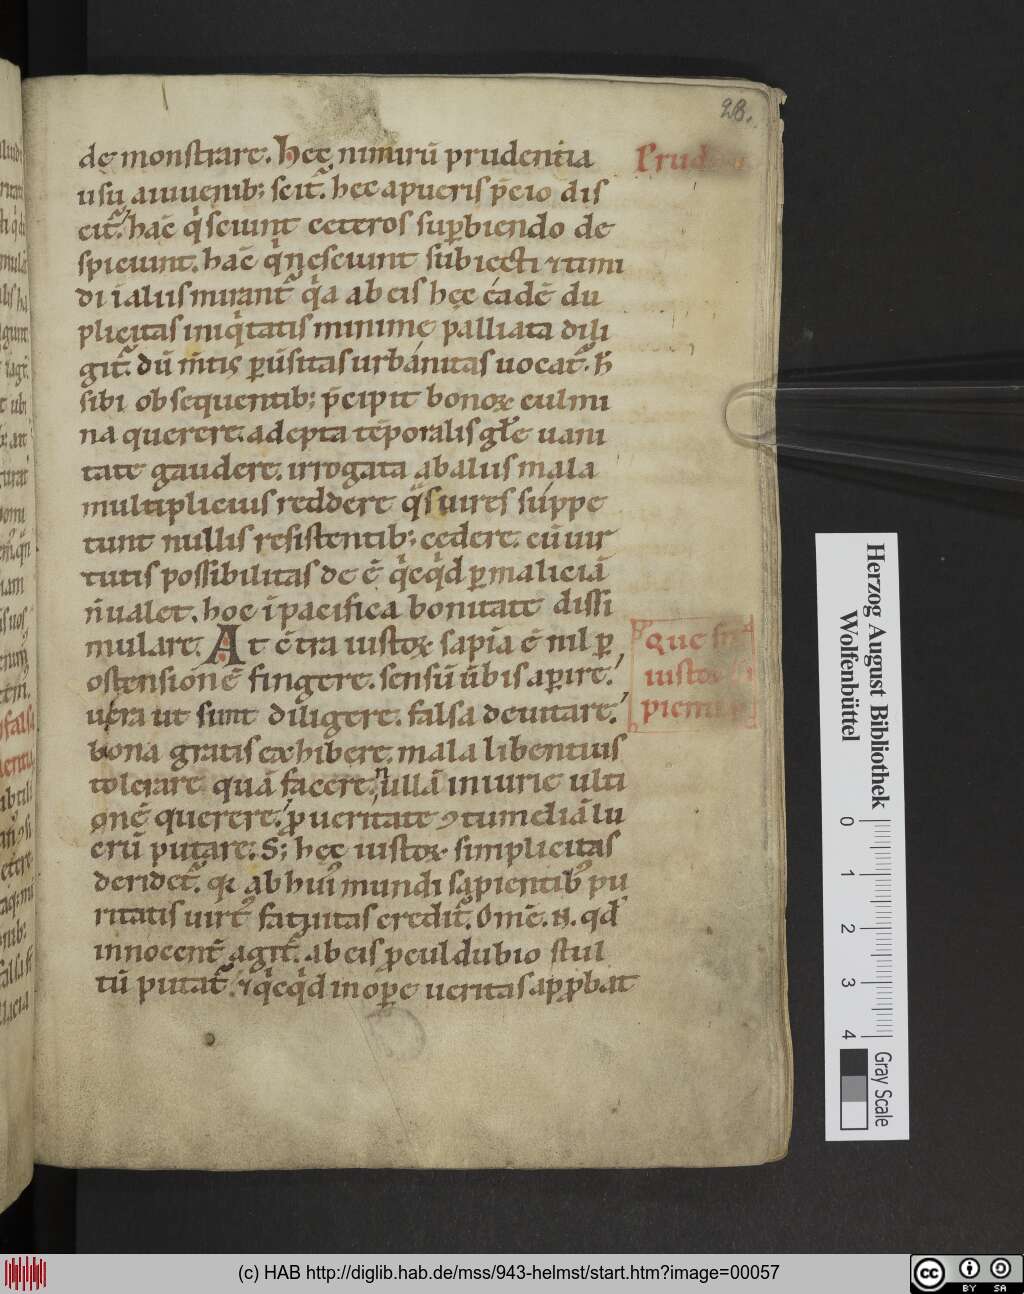 28.
demonstrare. hęc nimirū prudentia
usu a iuuenib; scit᷑. hec a pueris p̄cio dis
cit᷑. hāc qͥ sciunt ceteros suꝑbiendo de
spiciunt. hāc qͥ nesciunt subiecti ⁊ timi
di ī aliis mirant᷑ q̓a ab eis hęc eadē du
plicitas iniq̓tatis nimine palliata dili
git᷑. dū m̄tis ꝑuersitas urbanitas uocat᷑. h̄
sibi obsequentib; p̄cipit bonoꝝ culmi
na querere. adepta tēporalis gl̄e uani
tate gaudere. irrogata ab aliis mala
multiplicius reddere q̄ s uires suppe
tunt nullis resistentib; cedere. cū uir
tutis possibilitas deē̄ q̓cq̓d ꝑ maliciā
n̄ ualet. hoc ī pacifica bonitate dissi
mulare. At c̄tra iustoꝝ sapīa ē nil ꝑ
ostensionē fingere. sensū ūbis aꝑire.
uera ut sunt diligere. falsa deuitare.
bona gratis exhibere. mala libentius
tolerare quā facere. nullā iniurie ulti
onē querere. ꝓ ueritate ꝯtumeliā lu
crū putare. S; hęc iustoꝝ simplicitas
deridet᷑. qꝛ ab hui᷒ mundi sapientib᷒ pu
ritatis uirt᷒ fatuitas credit᷑. Om̄e. n̄. qd̄
innocent᷑ agit᷑. ab eis ꝓculdubio stul
tū putat᷑. ⁊ q̓cq̓d in oꝑe ueritas apꝓbat
Prud
Que
iusto
pien
Herzog August Bibliothek
Wolfenbüttel
0
1
2
3
4
Gray Scale
(c) HAB http://diglib.hab.de/mss/943-helmst/start.htm?image=00057
cc BY SA